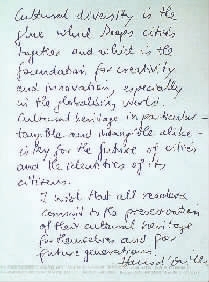 Cultural diversity is the
glue which keeps cities
together and which is the
foundation for creativity
and innovation, especially
in the globalising world.
Cultural heritage in particular –
tangible and intangible alike –
is key for the future of cities
and the identities of its
citizens.
I wish that all readers
commit to the preservation
of their cultural heritage
for themselves and for
future generations.